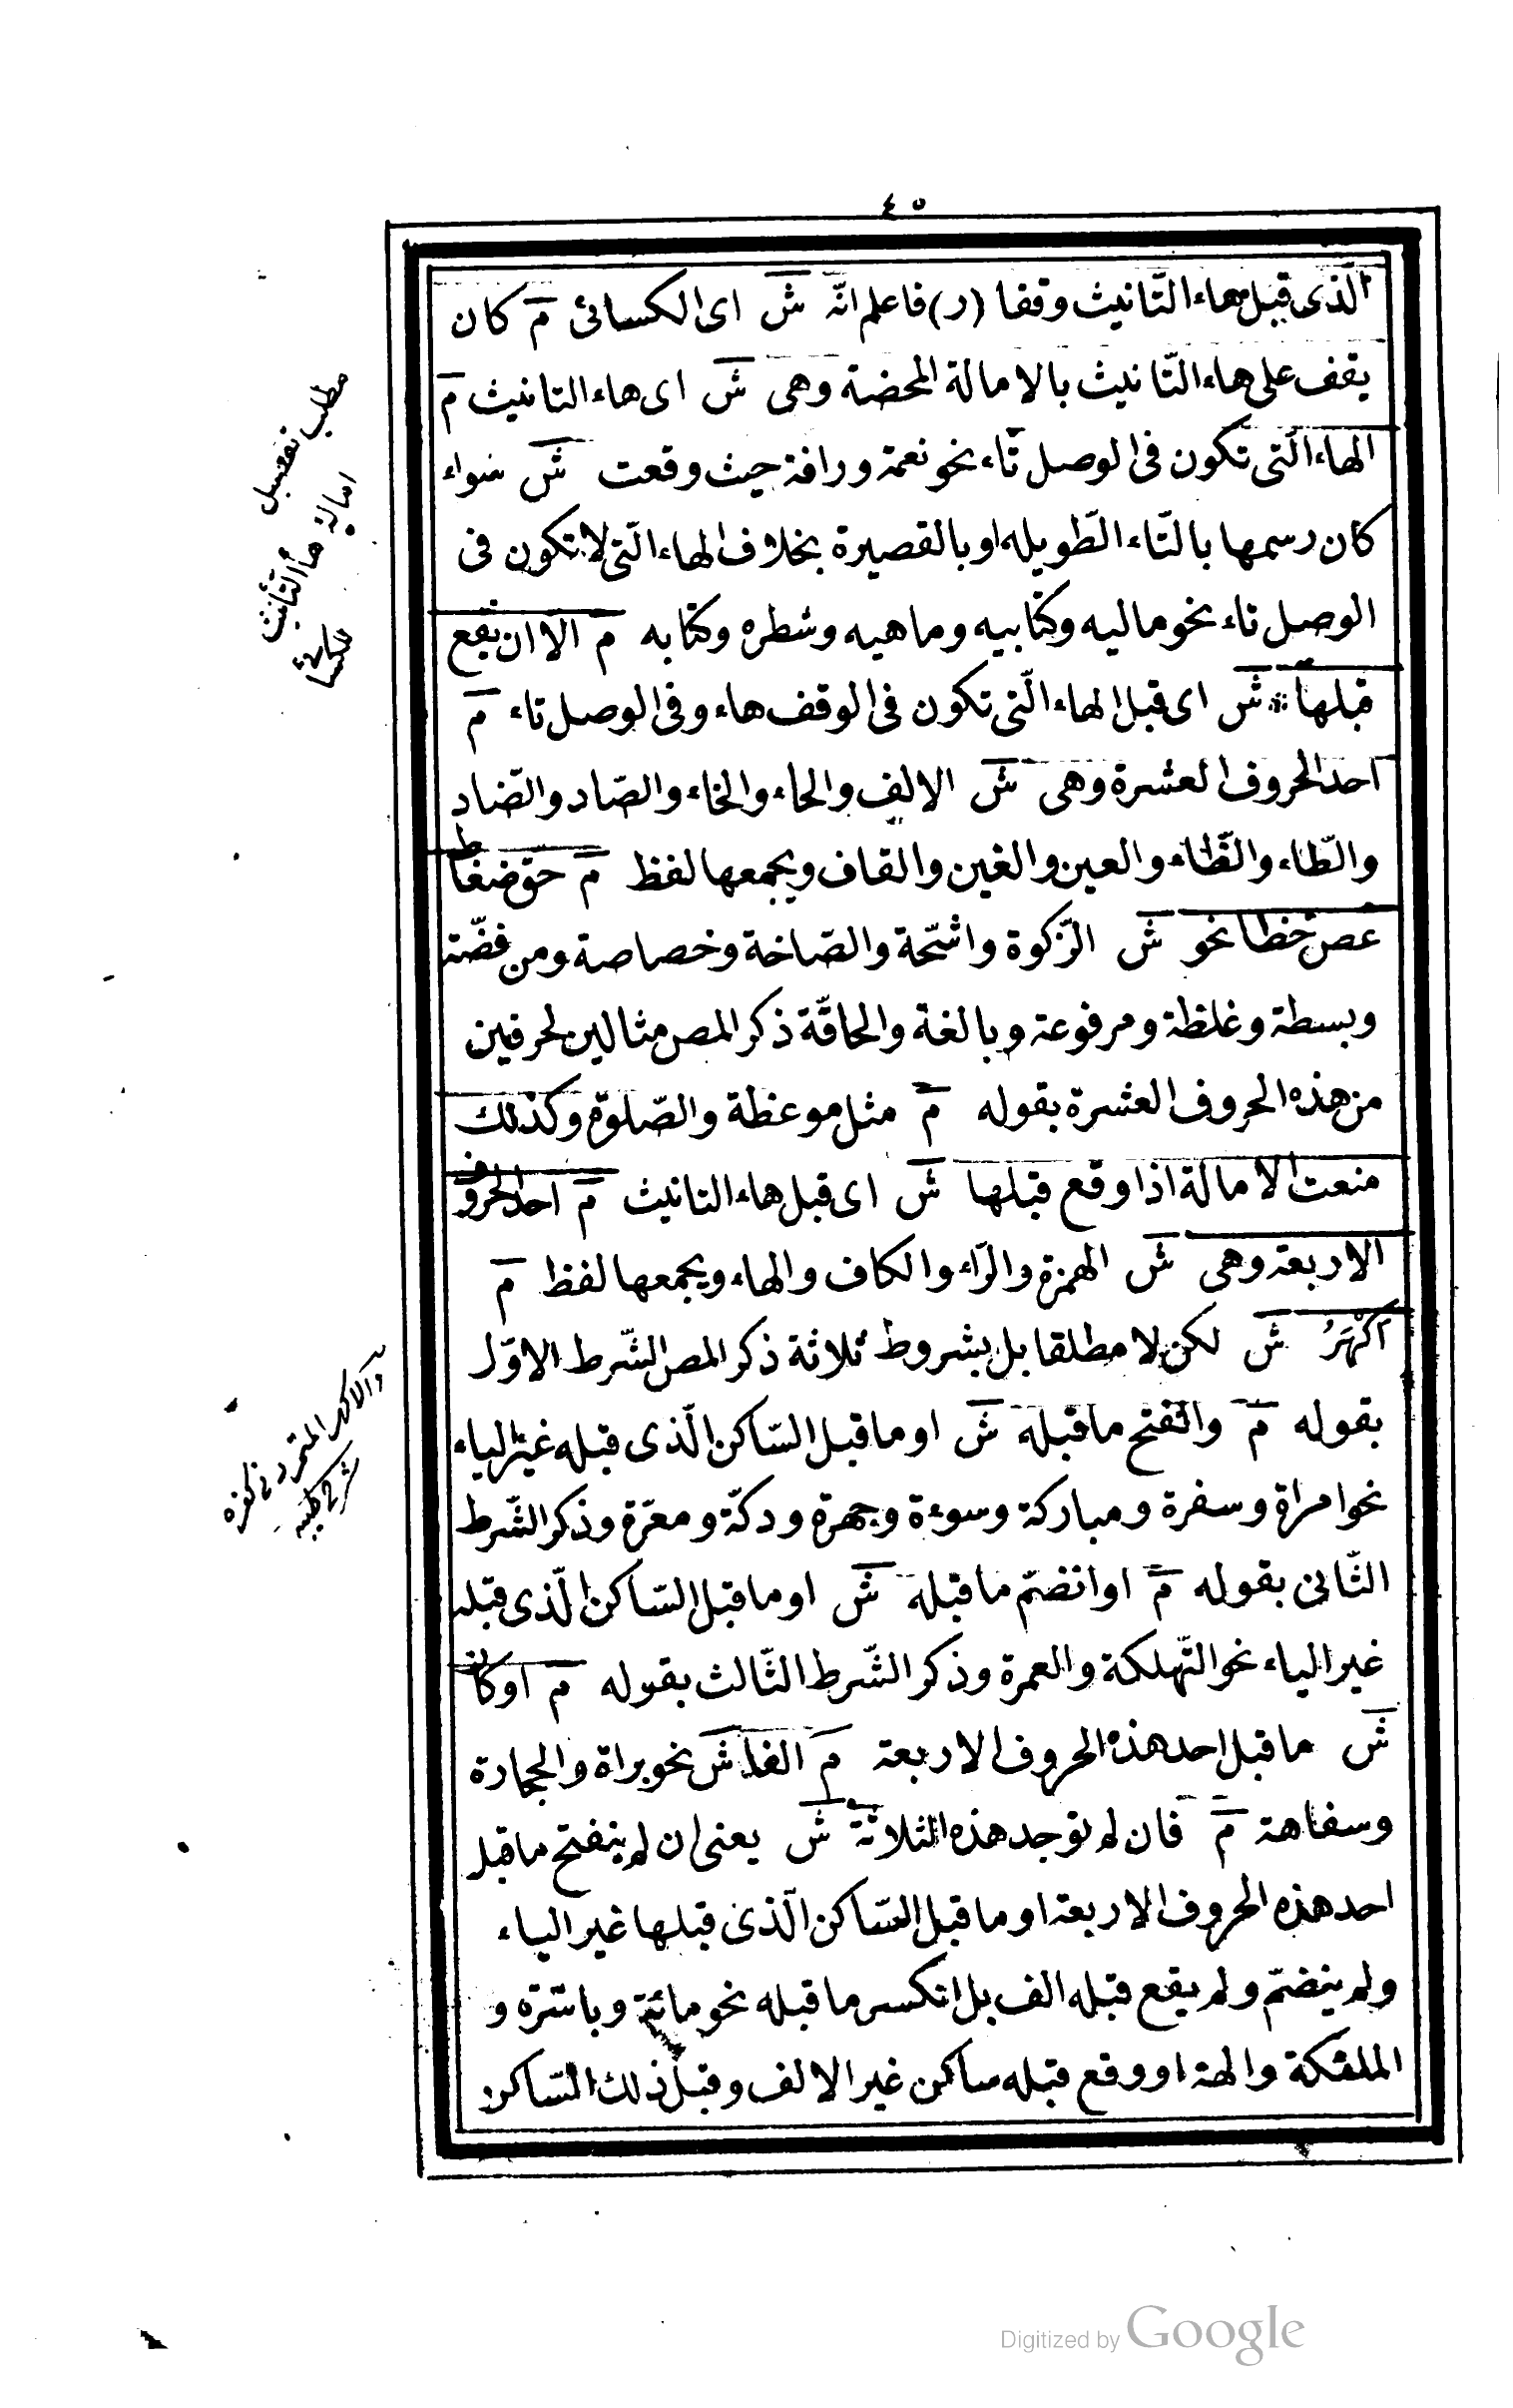 ٤٥
الّذى قبل هاء التّانيث وقفا (ر) فاعلم انّه ش اى الكسائى م كان
يقف على هاء التّانيث بالامالة المحضة وهى ش اى هاء التانيث م
الهاء الّتى تكون فى الوصل تاء نحو نعمة ورافة حيث وقعت ش سواء
كان رسمها بالتّاء الطّويله او بالقصيرة بخلاف الهاء الّتى لا تكون فى
الوصل تاء نحو ماليه وكتابيه وماهيه وشطره وكتابه م الا ان يقع
قبلها ش اى قبل الهاء الّتى تكون فى الوقف هاء وفى الوصل تاء م
احد الحروف العشرة وهى ش الالف والحاء والخاء والصّاد والضّاد
والطّاء والظّاء والعين والغين والقاف ويجمعها لفظ م حقّ ضغاط
عص خظا نحو ش الزّكوة واشحّة والصّاخة وخصاصة ومن فضّة
وبسطة وغلظة ومرفوعة وبالغة والحاقّة ذكر المص مثالين لحرفين
من هذه الحروف العشرة بقوله م مثل موعظة والصّلوة وكذلك
منعت الامالة اذا وقع قبلها ش اى قبل هاء التانيث م احد الحروف
الاربعة وهى ش الهمزة والرّاء والكاف والهاء ويجمعها لفظ م
اَكْهَرُ ش لكن لا مطلقا بل بشروط ثلاثة ذكر المص الشّرط الاوّل
بقوله م وانفتح ما قبله ش او ما قبل السّاكن الّذى قبله غير الياء
نحو امراة وسفرة ومباركة وسوءة وجهرة ودكّة ومعرّة وذكر الشّرط
الثّانى بقوله م او انضمّ ما قبله ش او ما قبل السّاكن الّذى قبله
غير الياء نحو التّهلكة والعمرة وذكر الشّرط الثّالث بقوله م او كان
ش ما قبل احد هذه الحروف الاربعة م الفا ش نحو براة والحجارة
وسفاهة م فان لم توجد هذه الثلاثة ش يعنى ان لم ينفتح ما قبل
احد هذه الحروف الاربعة او ما قبل السّاكن الّذى قبلها غير الياء
ولم ينضمّ ولم يقع قبله الف بل انكسر ما قبله نحو مائة وباسرة و
الملئكة والهة او وقع قبله ساكن غير الالف وقبل ذلك السّاكن
مطلب تفصيل
امالة هاء التّأنيث
للكسائى
والاكهر المتمرد فى كفره
شرح طيبه
Digitized by Google